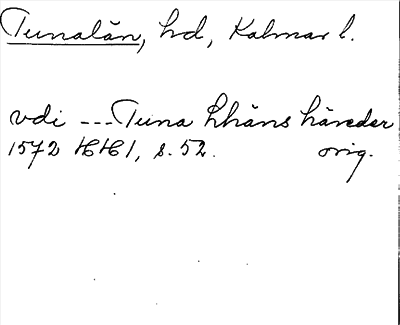 Tunalän, hd, Kalmar l.
vdi --- Tuna lhäns häreder
1572 HH1, s. 52. orig.